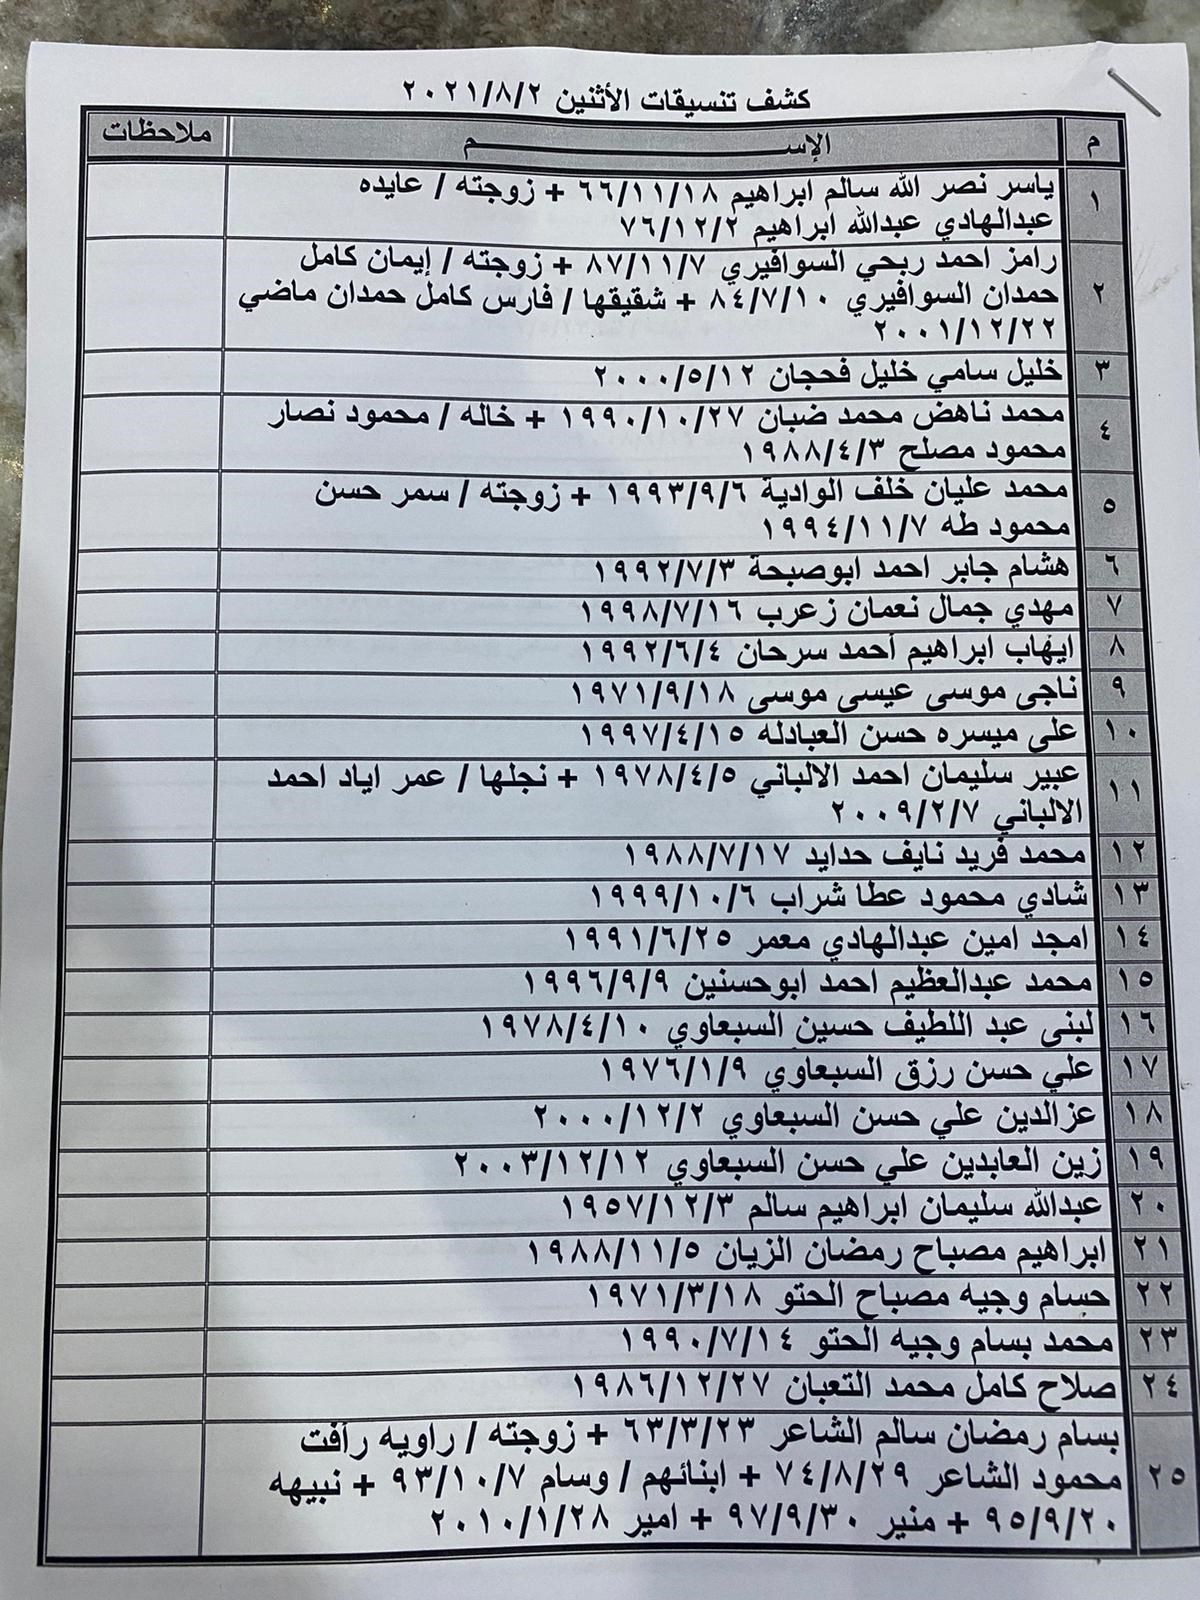 كشف تنسيقات الأثنين ٢٠٢١/٨/٢
م الإســـــــــــــــم ملاحظات
١ ياسر نصر الله سالم ابراهيم ٦٦/١١/١٨ + زوجته / عايده
عبدالهادي عبدالله ابراهيم ٧٦/١٢/٢
٢ رامز احمد ربحي السوافيري ٨٧/١١/٧ + زوجته / إيمان كامل
حمدان السوافيري ٨٤/٧/١٠ + شقيقها / فارس كامل حمدان ماضي
٢٠٠١/١٢/٢٢
٣ خليل سامي خليل فحجان ٢٠٠٠/٥/١٢
٤ محمد ناهض محمد ضبان ١٩٩٠/١٠/٢٧ + خاله / محمود نصار
محمود مصلح ١٩٨٨/٤/٣
٥ محمد عليان خلف الوادية ١٩٩٣/٩/٦ + زوجته / سمر حسن
محمود طه ١٩٩٤/١١/٧
٦ هشام جابر احمد ابوصبحة ١٩٩٢/٧/٣
٧ مهدي جمال نعمان زعرب ١٩٩٨/٧/١٦
٨ ايهاب ابراهيم أحمد سرحان ١٩٩٢/٦/٤
٩ ناجى موسى عيسى موسى ١٩٧١/٩/١٨
١٠ على ميسره حسن العبادله ١٩٩٧/٤/١٥
١١ عبير سليمان احمد الالباني ١٩٧٨/٤/٥ + نجلها / عمر اياد احمد
الالباني ٢٠٠٩/٢/٧
١٢ محمد فريد نايف حدايد ١٩٨٨/٧/١٧
١٣ شادي محمود عطا شراب ١٩٩٩/١٠/٦
١٤ امجد امين عبدالهادي معمر ١٩٩١/٦/٢٥
١٥ محمد عبدالعظيم احمد ابوحسنين ١٩٩٦/٩/٩
١٦ لبنى عبد اللطيف حسين السبعاوي ١٩٧٨/٤/١٠
١٧ علي حسن رزق السبعاوي ١٩٧٦/١/٩
١٨ عزالدين علي حسن السبعاوي ٢٠٠٠/١٢/٢
١٩ زين العابدين علي حسن السبعاوي ٢٠٠٣/١٢/١٢
٢٠ عبدالله سليمان ابراهيم سالم ١٩٥٧/١٢/٣
٢١ ابراهيم مصباح رمضان الزيان ١٩٨٨/١١/٥
٢٢ حسام وجيه مصباح الحتو ١٩٧١/٣/١٨
٢٣ محمد بسام وجيه الحتو ١٩٩٠/٧/١٤
٢٤ صلاح كامل محمد التعبان ١٩٨٦/١٢/٢٧
٢٥ بسام رمضان سالم الشاعر ٦٣/٣/٢٣ + زوجته / راويه رأفت
محمود الشاعر ٧٤/٨/٢٩ + ابنائهم / وسام ٩٣/١٠/٧ + نبيهه
٩٥/٩/٢٠ + منير ٩٧/٩/٣٠ + امير ٢٠١٠/١/٢٨